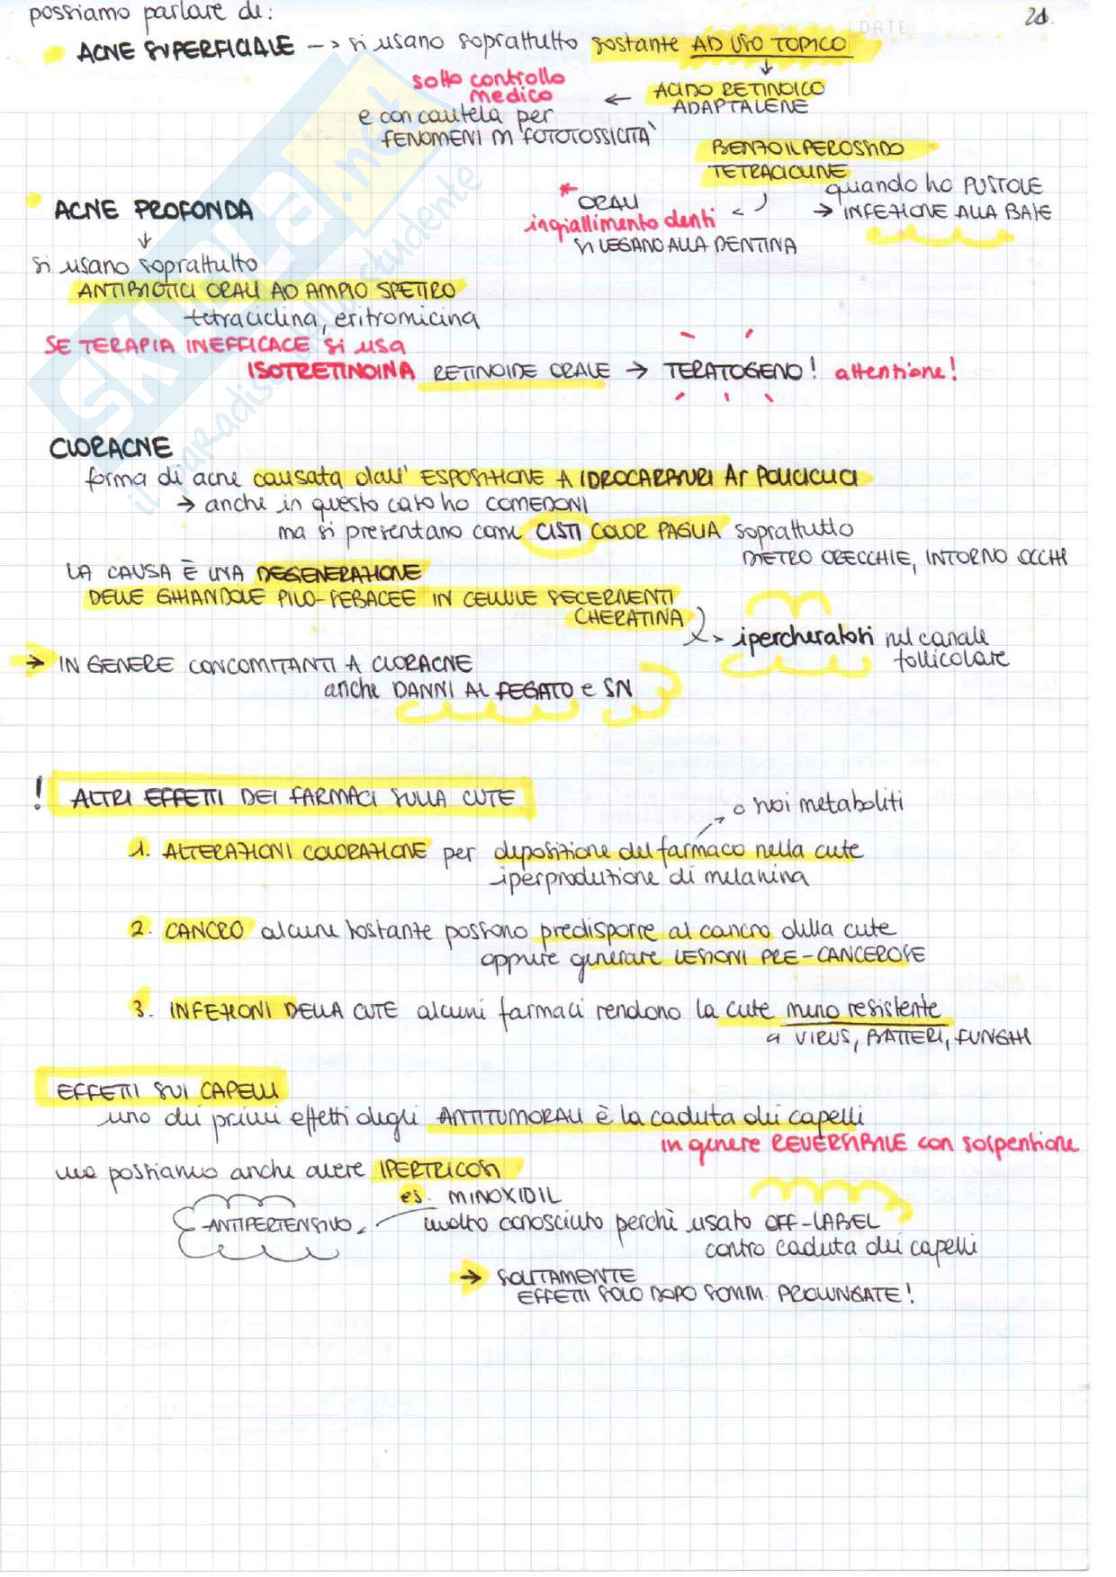 possiamo parlare di:
21.
ACNE SUPERFICIALE --> si usano soprattutto sostanze AD USO TOPICO
sotto controllo
medico
← ACIDO RETINOICO
ADAPTALENE
e con cautela per
FENOMENI DI FOTOTOSSICITÀ
BENZOILPEROSSIDO
TETRACICLINE
quando ho PUSTOLE
→ INFEZIONE ALLA BASE
* ORALI
ingiallimento denti
SI LEGANO ALLA DENTINA
ACNE PROFONDA
↓
si usano soprattutto
ANTIBIOTICI ORALI AD AMPIO SPETTRO
tetraciclina, eritromicina
SE TERAPIA INEFFICACE si usa
ISOTRETINOINA RETINOIDE ORALE → TERATOGENO! attenzione!
CLORACNE
forma di acne causata dall' ESPOSIZIONE A IDROCARBURI Ar POLICICLICI
→ anche in questo caso ho COMEDONI
ma si presentano come CISTI COLOR PAGLIA soprattutto
DIETRO ORECCHIE, INTORNO OCCHI
LA CAUSA È UNA DEGENERAZIONE
DELLE GHIANDOLE PILO-SEBACEE IN CELLULE SECERNENTI
CHERATINA
→ ipercheratosi nel canale
follicolare
→ IN GENERE CONCOMITANTI A CLORACNE
anche DANNI AL FEGATO e SN
! ALTRI EFFETTI DEI FARMACI SULLA CUTE
o suoi metaboliti
1. ALTERAZIONI COLORAZIONE per deposizione del farmaco nella cute
iperproduzione di melanina
2. CANCRO alcune sostanze possono predisporre al cancro della cute
oppure generare LESIONI PRE-CANCEROSE
3. INFEZIONI DELLA CUTE alcuni farmaci rendono la cute meno resistente
a VIRUS, BATTERI, FUNGHI
EFFETTI SUI CAPELLI
uno dei primi effetti degli ANTITUMORALI è la caduta dei capelli
in genere REVERSIBILE con sospensione
ma possiamo anche avere IPERTRICOSI
es. MINOXIDIL
ANTIPERTENSIVO
molto conosciuto perchè usato OFF-LABEL
contro caduta dei capelli
→ SOLITAMENTE
EFFETTI SOLO DOPO SOMM. PROLUNGATE!
SKUOLA.net
il paradiso dello studente